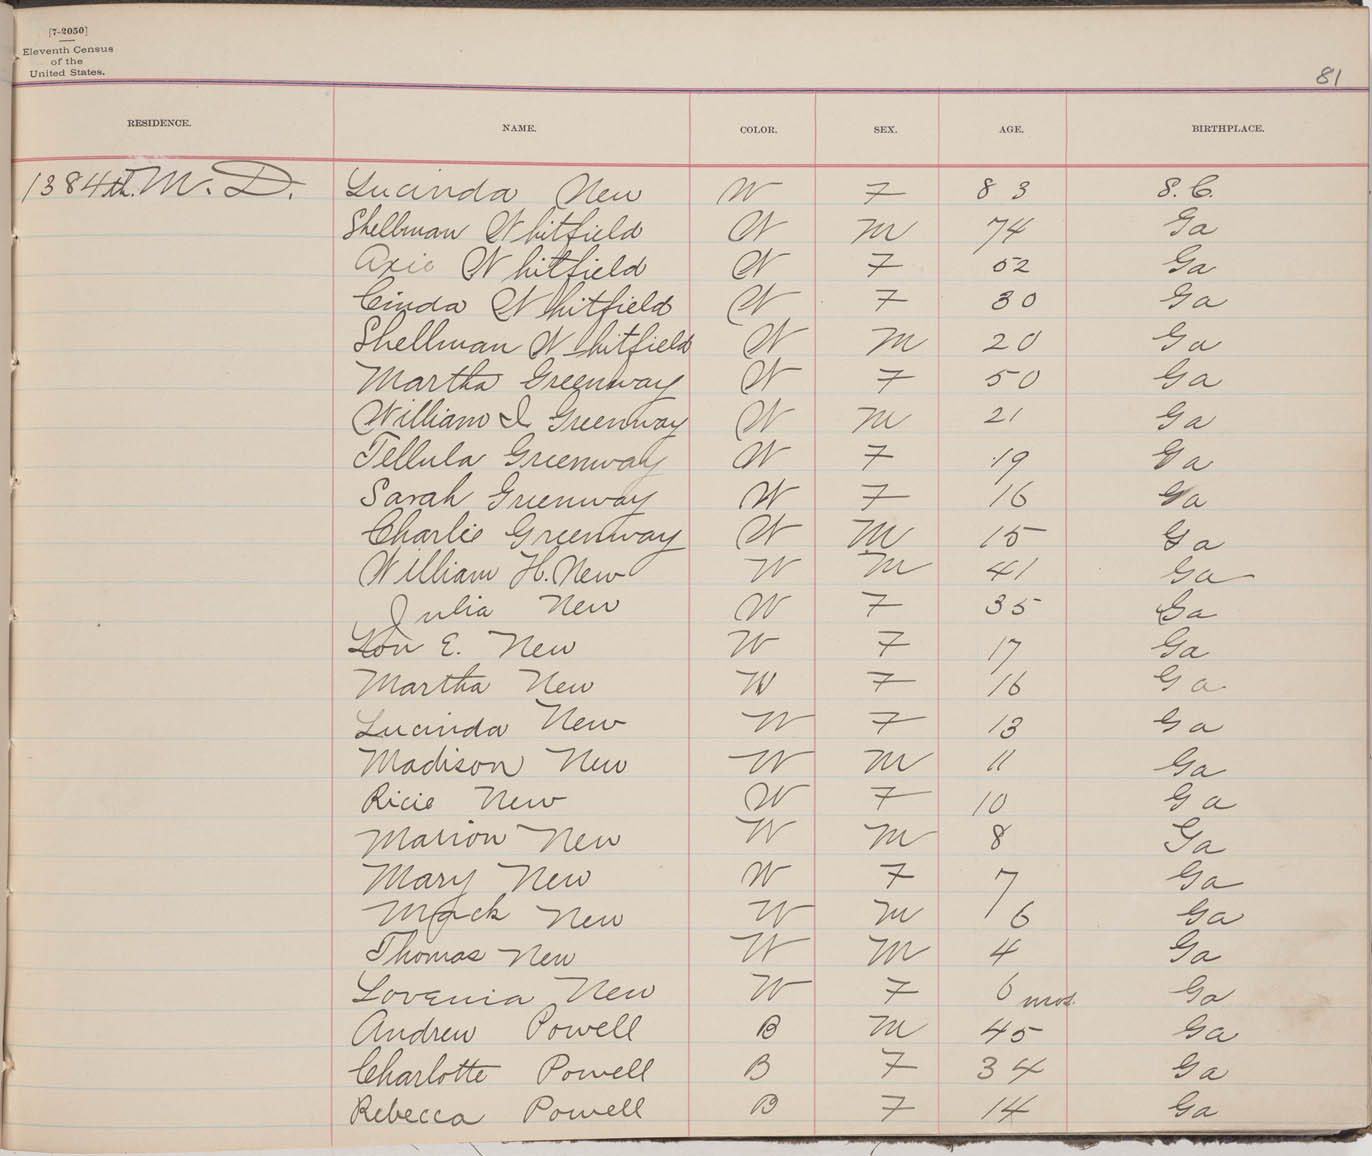 [7-2050]
Eleventh Census
of the
United States.
81
RESIDENCE. NAME. COLOR. SEX. AGE. BIRTHPLACE.
1384th. M. D. Lucinda New W F 83 S. C.
Shellman Whitfield W M 74 Ga
Axie Whitfield W F 52 Ga
Cinda Whitfield W F 30 Ga
Shellman Whitfield W M 20 Ga
Martha Greenway W F 50 Ga
William I Greenway W M 21 Ga
Tellula Greenway W F 19 Ga
Sarah Greenway W F 16 Ga
Charlie Greenway W M 15 Ga
William H. New W M 41 Ga
Julia New W F 35 Ga
Lou E. New W F 17 Ga
Martha New W F 16 Ga
Lucinda New W F 13 Ga
Madison New W M 11 Ga
Ricie New W F 10 Ga
Marion New W M 8 Ga
Mary New W F 7 Ga
Mack New W M 6 Ga
Thomas New W M 4 Ga
Lovenia New W F 6 mos. Ga
Andrew Powell B M 45 Ga
Charlotte Powell B F 34 Ga
Rebecca Powell B F 14 Ga